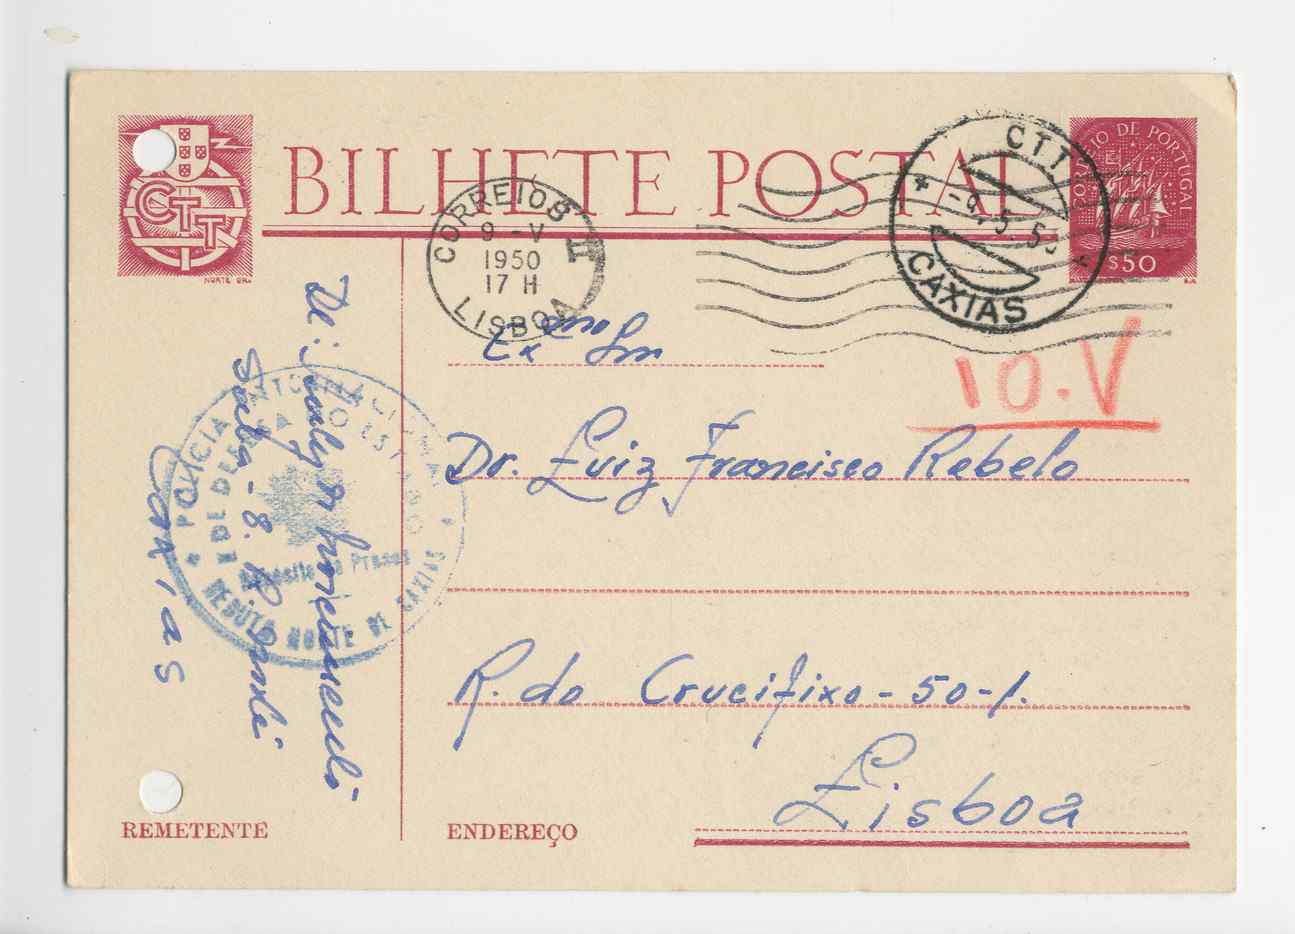 CTT
NORTE GR.
BILHETE POSTAL
CORREIOS II
9 - V
1950
17 H
LISBOA
CTT
-9. 5. 5
CAXIAS
DE PORTUGAL
$50
Exmo Snr
10.V
Dr. Luiz Francisco Rebelo
R. do Crucifixo - 50 - 1.
Lisboa
De:
Sala - 8. R.
Caxias
POLICIA INTERNACIONAL
E DE DEFESA DO ESTADO
Deposito de Presos
REDUTO NORTE DE CAXIAS
REMETENTE
ENDEREÇO